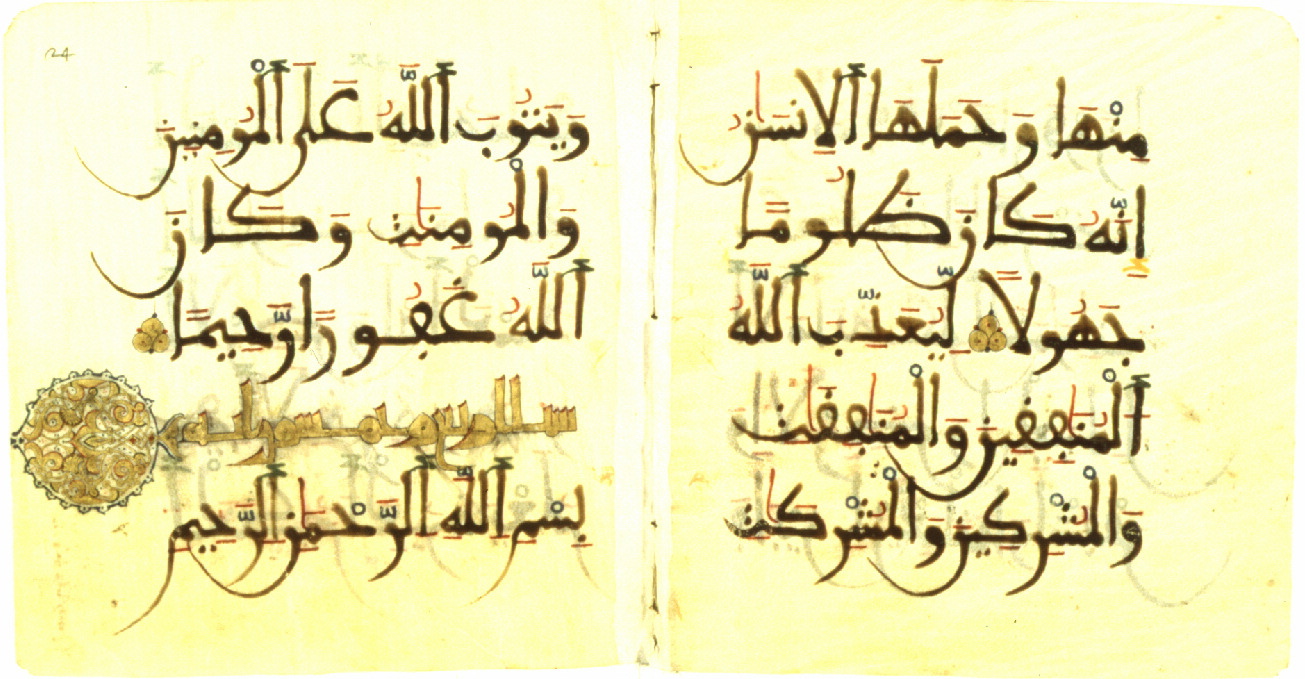 مِنْهَا وَحَمَلَهَا ٱلْإِنسَٰنُ
إِنَّهُۥ كَانَ ظَلُومًا
جَهُولًا لِّيُعَذِّبَ ٱللَّهُ
ٱلْمُنَٰفِقِينَ وَٱلْمُنَٰفِقَٰتِ
وَٱلْمُشْرِكِينَ وَٱلْمُشْرِكَٰتِ
24
وَيَتُوبَ ٱللَّهُ عَلَى ٱلْمُومِنِينَ
وَٱلْمُومِنَٰتِ وَكَانَ
ٱللَّهُ غَفُورًا رَّحِيمًا
سبا اربع وخمسون اية
بِسْمِ ٱللَّهِ ٱلرَّحْمَٰنِ ٱلرَّحِيمِ